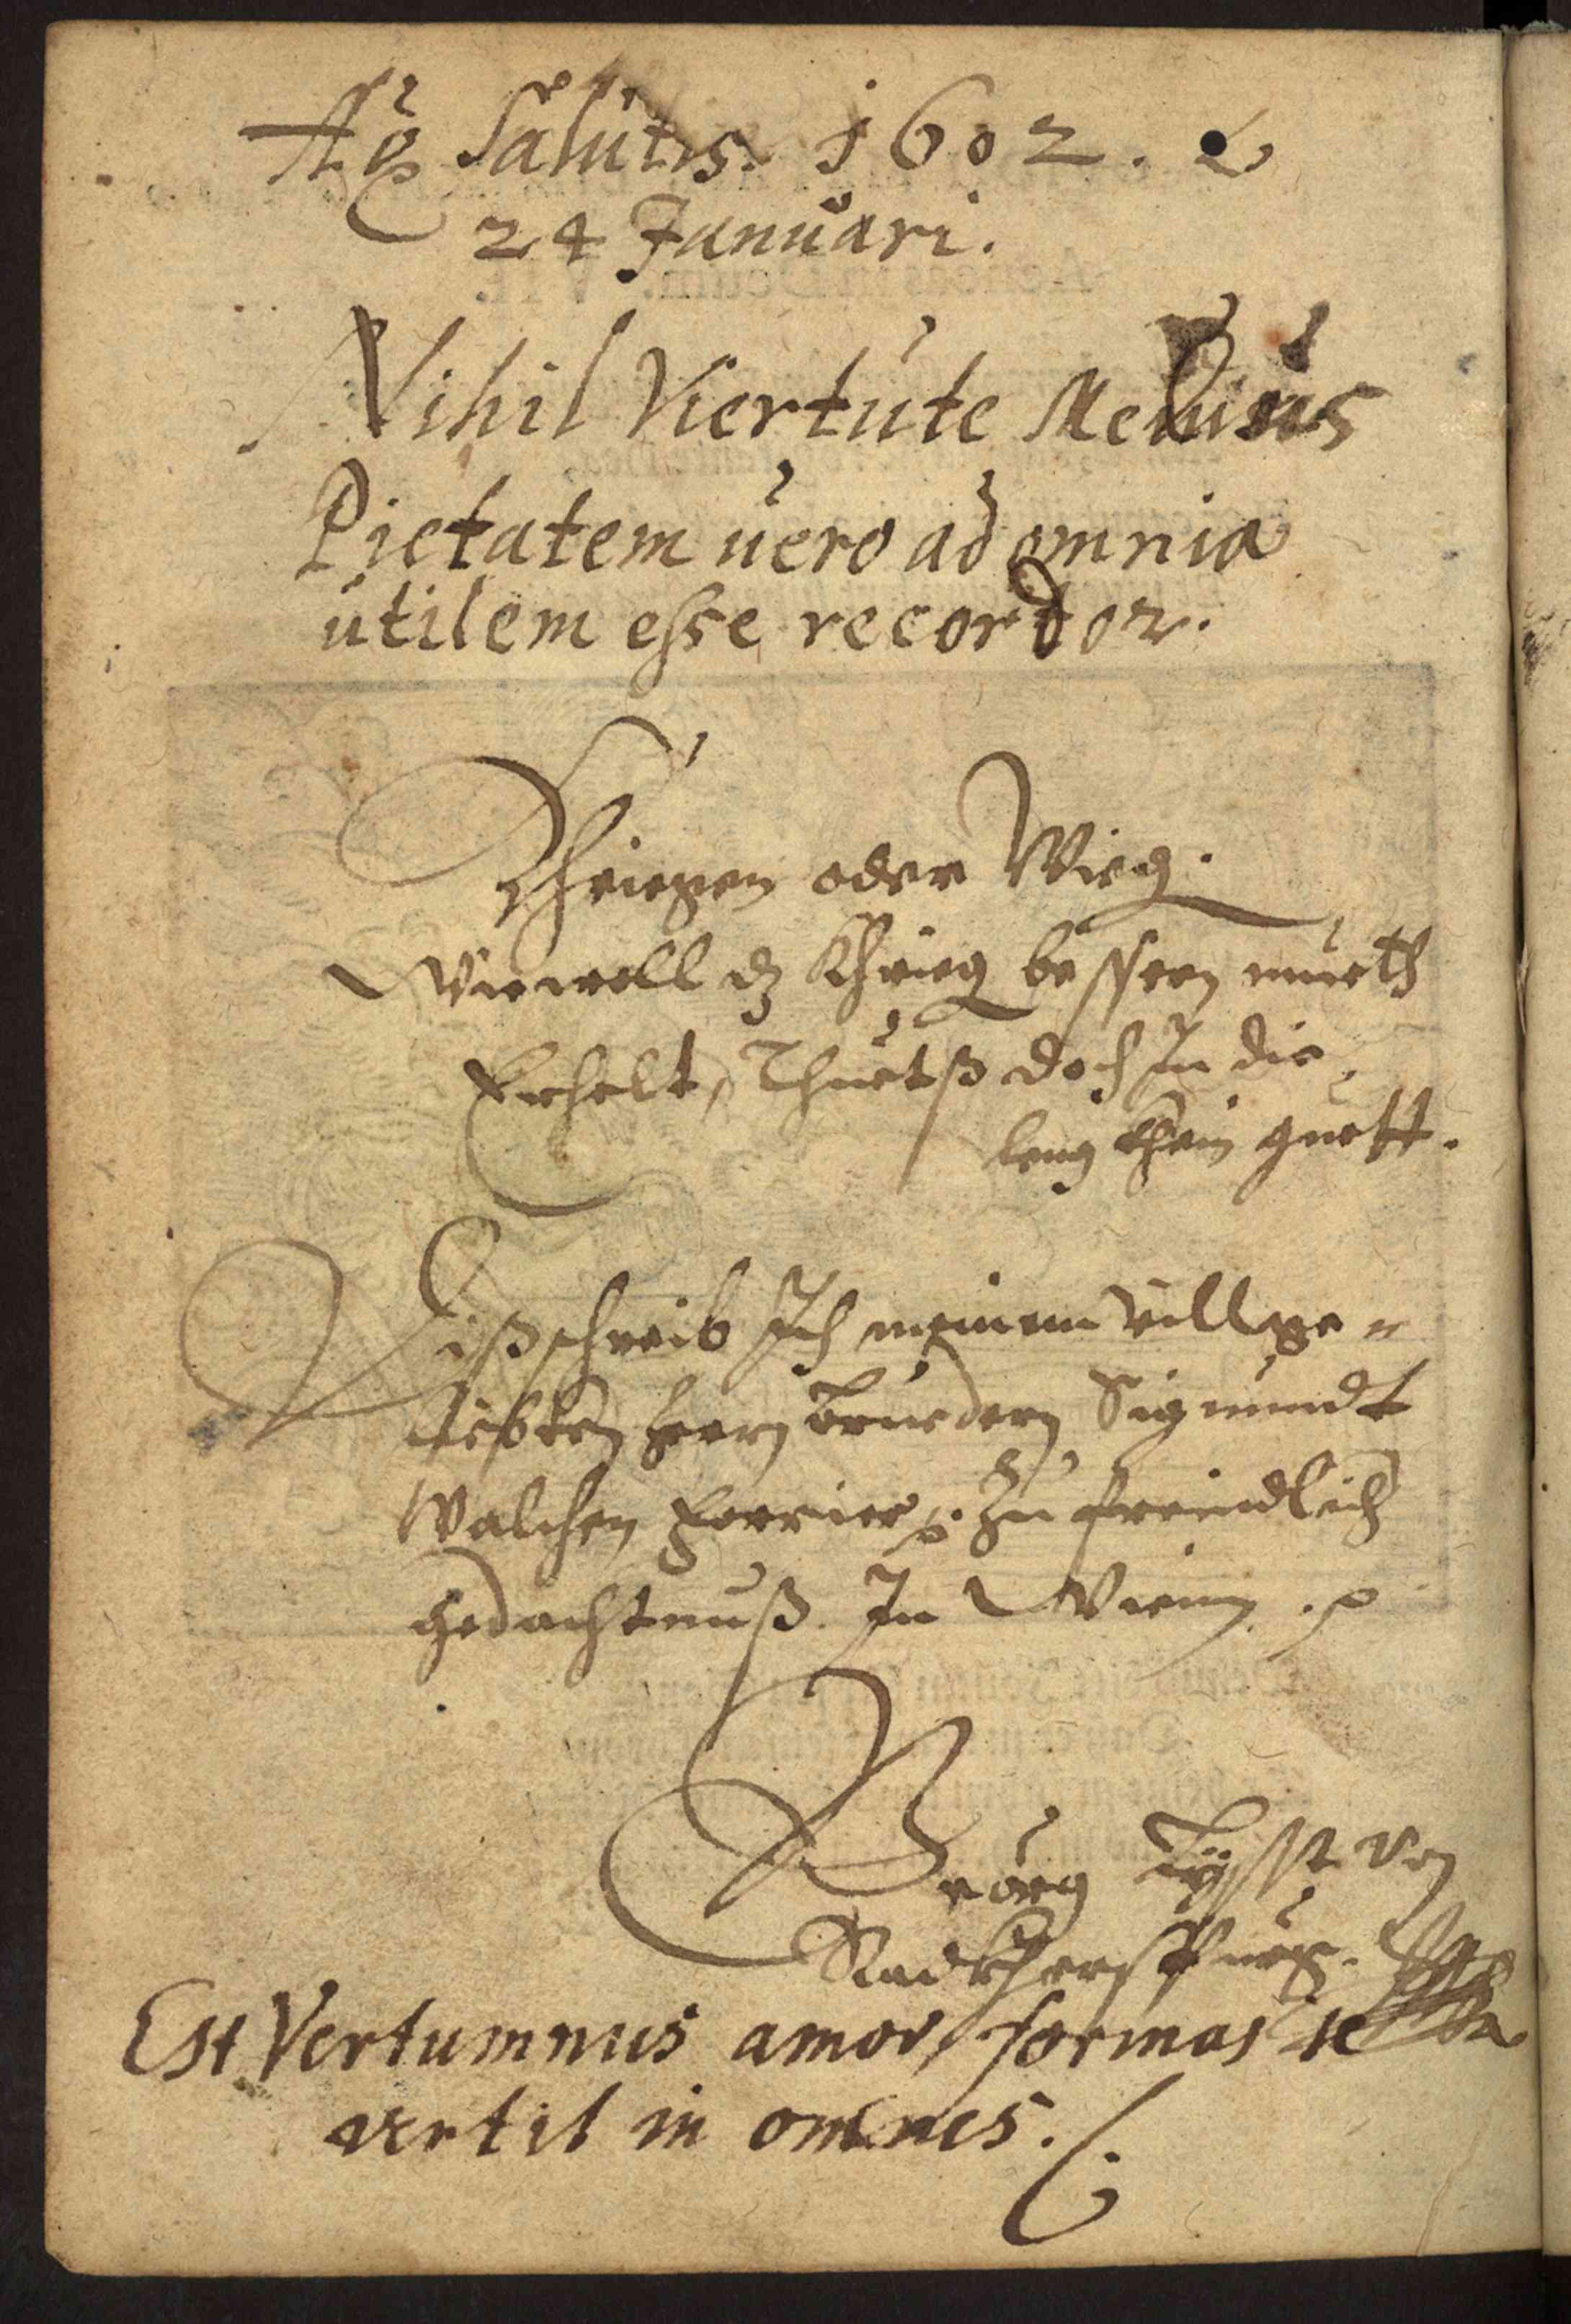 Aº Salutis. 1602.
24 Januari.
Nihil Viertute Melius
Pietatem uero ad omnia
utilem esse recordor.
Khriegen oder Wieg.
Wiewoll dz Khrieg bessern mueth
Erhelt, Thuetß doch In die
leng khein guett.
Diß schreib Ich meinem villge-
liebten herrn bruedern Sigmundt
Walchen zu freindlich
gedachtnuß In Wienn.
Georg von
Radkherspurg.
Est Vertumnus amor, formas se
vertit in omnes.